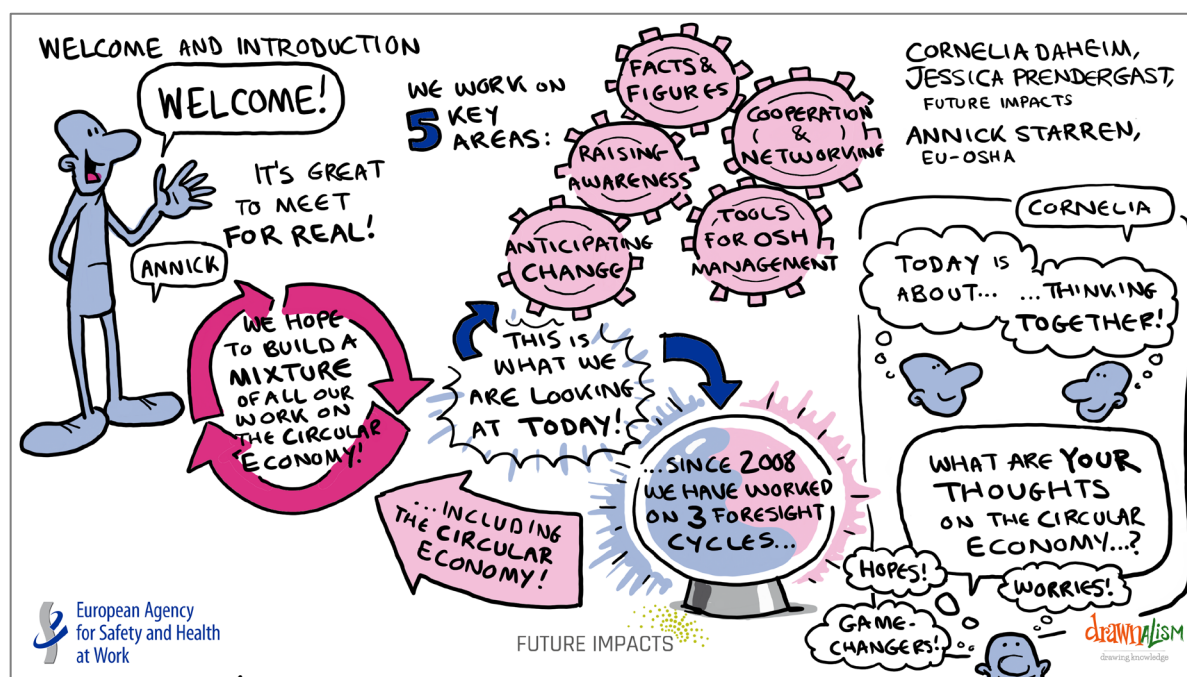 WELCOME AND INTRODUCTION
WELCOME!
IT'S GREAT
TO MEET
FOR REAL!
ANNICK
WE HOPE
TO BUILD A
MIXTURE
OF ALL OUR
WORK ON
THE CIRCULAR
ECONOMY!
WE WORK ON
5 KEY
AREAS:
FACTS &
FIGURES
COOPERATION
(&)
NETWORKING
RAISING-
AWARENESS
TOOLS
FOR OSH
MANAGEMENT
ANTICIPATING
CHANGE
THIS IS
WHAT WE
ARE LOOKING
AT TODAY!
...SINCE 2008
WE HAVE WORKED
ON 3 FORESIGHT
CYCLES...
...INCLUDING
THE CIRCULAR
ECONOMY!
CORNELIA DAHEIM,
JESSICA PRENDERGAST,
FUTURE IMPACTS
ANNICK STARREN,
EU-OSHA
CORNELIA
TODAY IS
ABOUT...
...THINKING
TOGETHER!
WHAT ARE YOUR
THOUGHTS
ON THE CIRCULAR
ECONOMY...?
HOPES!
WORRIES!
GAME-
CHANGERS!
European Agency
for Safety and Health
at Work
FUTURE IMPACTS
drawnalism
drawing knowledge